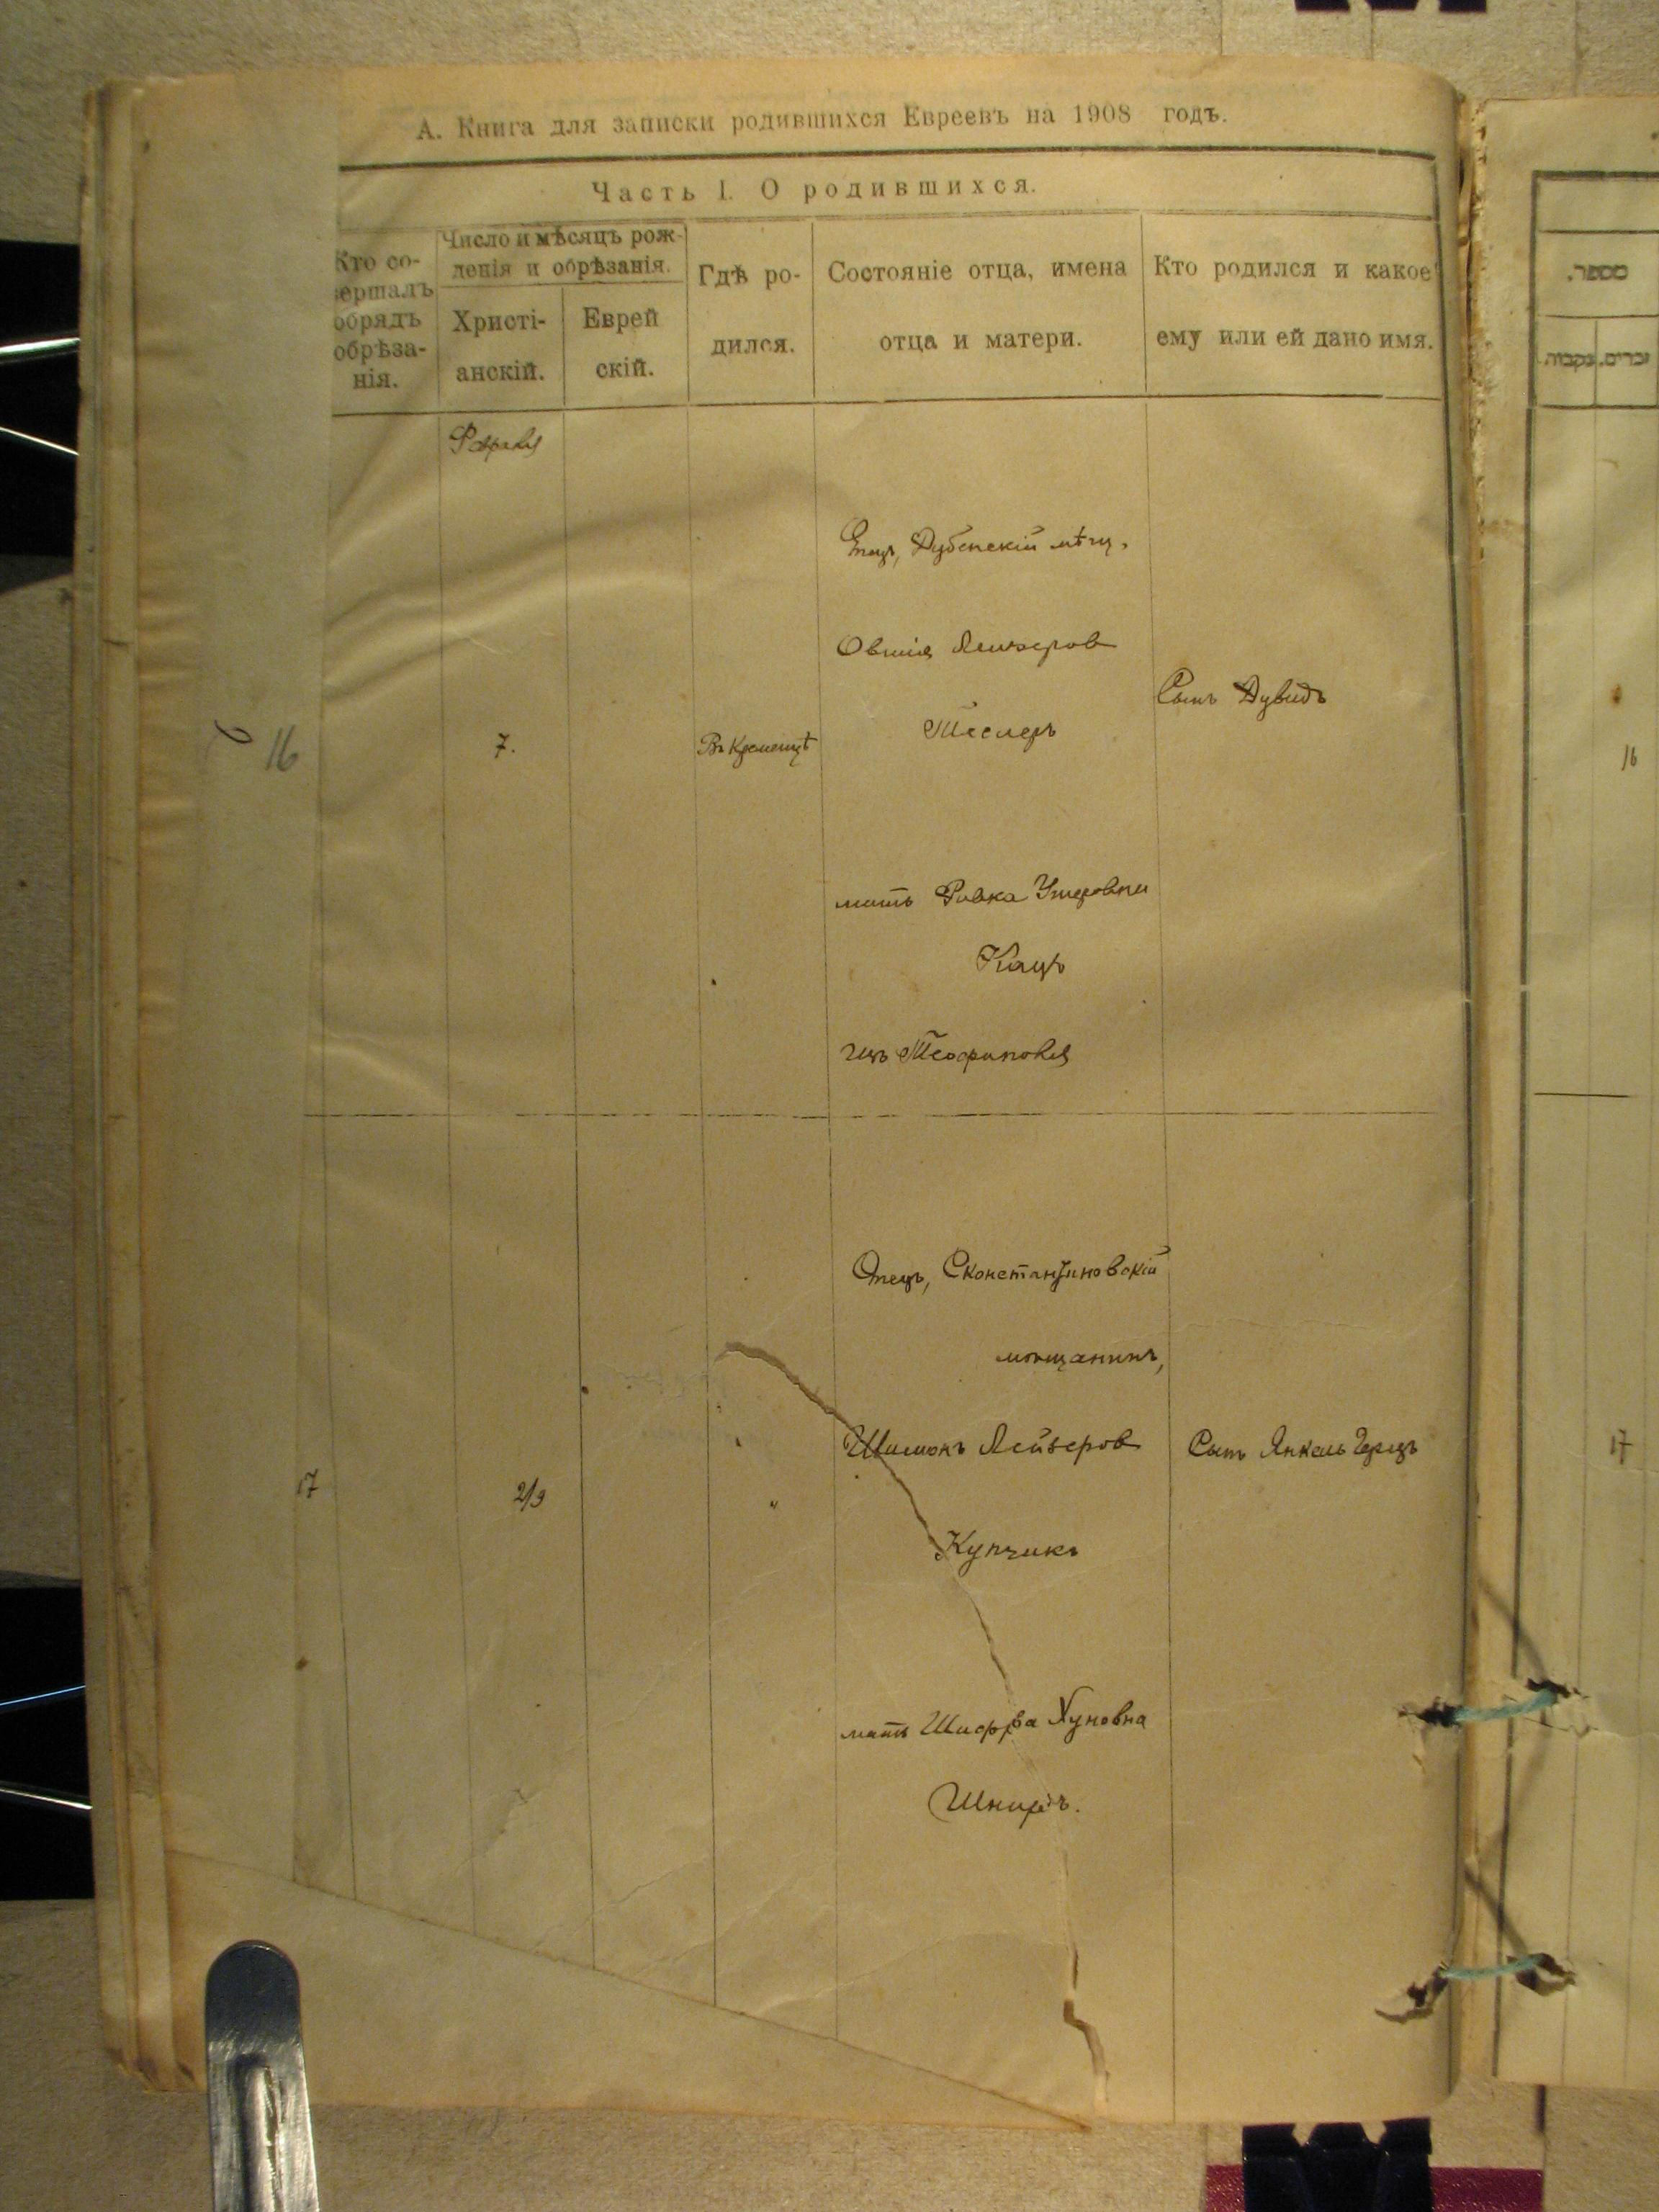 А. Книга для записки родившихся Евреевъ на 1908 годъ.
Часть I. О родившихся.
Кто со-
вершалъ
обрядъ
обрѣза-
нія.
Число и мѣсяцъ рож-
денія и обрѣзанія.
Христі-
анскій.
Еврей
скій.
Гдѣ ро-
дился.
Состояніе отца, имена
отца и матери.
Кто родился и какое
ему или ей дано имя.
מספר.
זכרים. נקבות
Февраля
Отецъ, Дубенскій мѣщ.
Овшія Лейзеров
Теслеръ
Сынъ Дувидъ
16
7.
Въ Кременцѣ
16
мать Ривка Ушеровна
Кацъ
изъ Теофиполя
Отецъ, Сконстантиновскій
мѣщанинъ,
Шимонъ Лейзеров
Сынъ Янкель Герцъ
17
17
2/9
"
Купчикъ
мать Шифра Хуновна